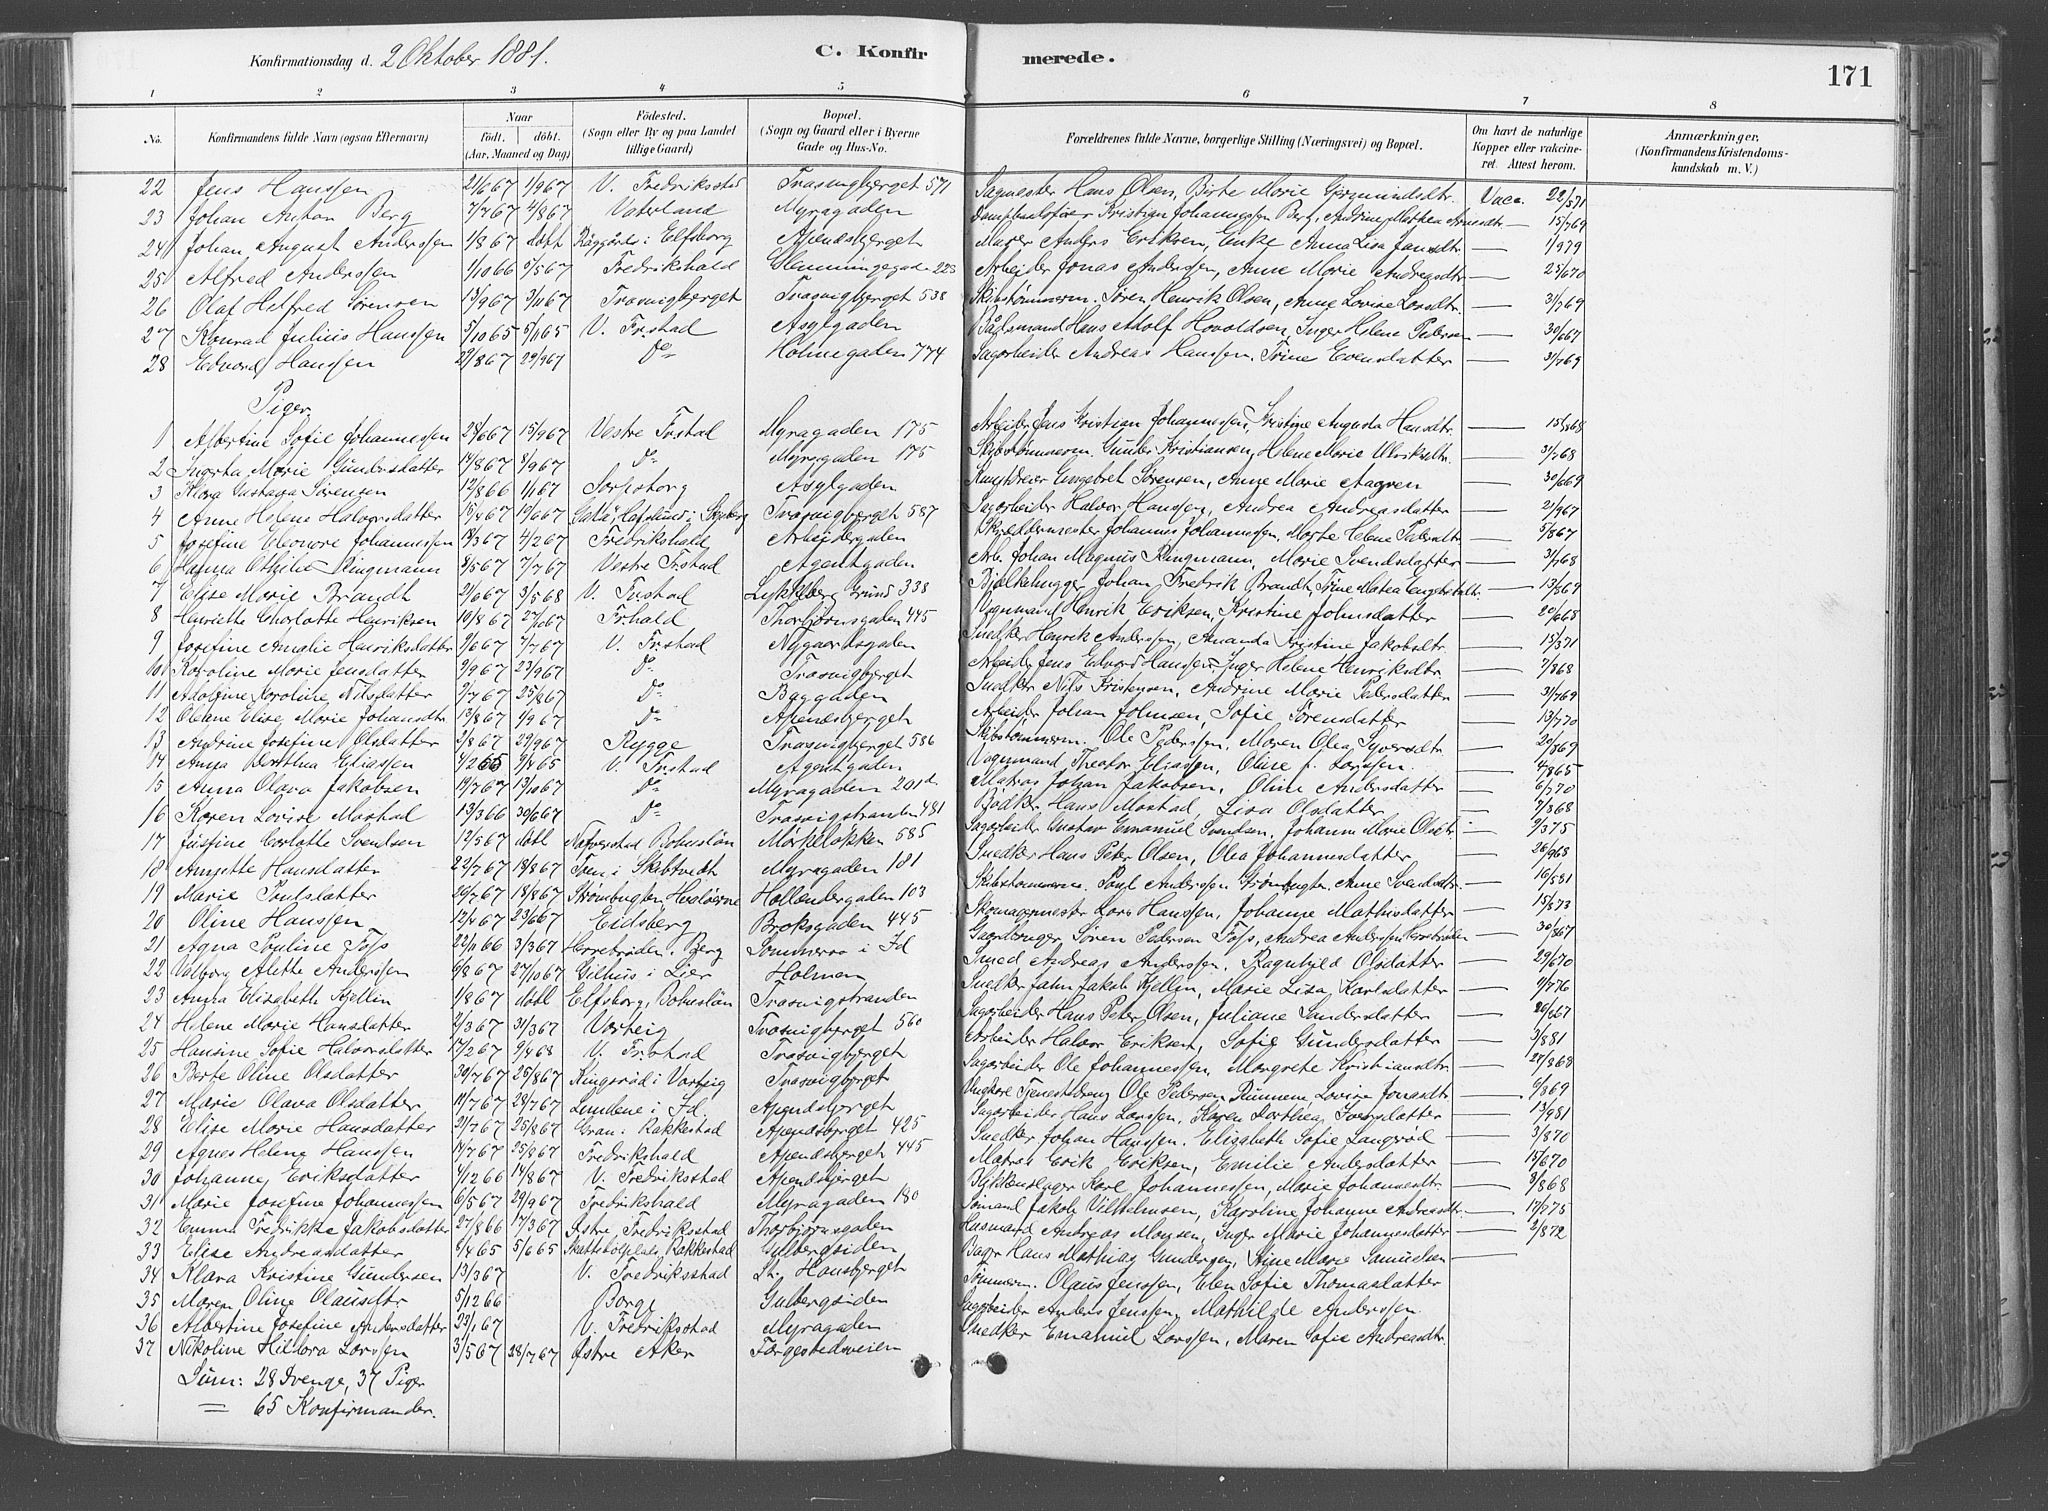 Konfirmationsdag d. 2 Oktober 1881. C. Konfirmerede. 171
1 2 3 4 5 6 7 8
No. Konfirmandens fulde Navn (ogsaa Efternavn) Naar født. døbt. (Aar, Maaned og Dag) Fødested. (Sogn eller By og paa Landet tillige Gaard) Bopæl. (Sogn og Gaard eller i Byerne Gade og Hus-No. Forældrenes fulde Navne, borgerlige Stilling (Næringsvei) og Bopæl. Om havt de naturlige Kopper eller vakcineret. Attest herom. Anmærkninger, (Konfirmandens Kristendomskundskab m. V.)
22 Jens Hanssen 21/667 1/967 V. Fredriksstad Trosvigberget 571 Sagmester Hans Olsen, Birte Marie Gjermundsdtr. Vacc. 22/571
23 Johan Anton Berg 7/767 4/867 Vaterland Myragaden Kristian Johannessen Berg, Andrine Mathea Arnesdtr. — 15/769
24 Johan August Anderssen 1/867 døbt i Elfsborg Apenæsberget Murer Anders Eriksen, Enke Anna Lisa Jansdtr. — 1/979
25 Alfred Anderssen 1/1066 5/567 Fredrikshald Glemmingegade 223 Arbeider Jonas Anderssen, Anne Marie Andreasdtr. — 23/670
26 Olaf Hilfred Sørensen 13/967 3/1167 Trosvigberget Trosvigberget 538 Skibstømmerm. Søren Henrik Olsen, Anne Lovise Larsdtr. — 3/769
27 Konrad Julius Hanssen 5/1065 5/1165 V. Frstad Asylgaden Hans Adolf Hovoldsen, Inger Helene Pedersen — 30/667
28 Edvard Hanssen 22/867 29/967 Do Holmegaden 774 Sagarbeider Andreas Hanssen, Trine Evensdatter — 3/769
Piger
1 Albertine Sofie Johannessen 28/667 15/967 Vestre Frstad Myragaden 175 Arbeider Jens Kristian Johannessen, Kristine Augusta Hansdtr. — 15/868
2 Ingerta Marie Gundersdatter 14/867 8/967 Do Myragaden 175 Skibstømmerm. Gunder Kristiansen, Helene Marie Ulriksdtr. — 3/768
3 Klara Gustava Sørensen 12/866 1/167 Sarpsborg Asylgaden Engebret Sørensen, Anne Marie Aagren — 30/669
4 Anne Helene Halvorsdatter 15/467 19/667 Hafslund i Skjeberg Trosvigberget 587 Sagarbeider Halvor Hanssen, Andrea Andreasdatter — 2/967
5 Josefine Eleonore Johannessen 4/267 Fredrikshald Arbeidergaden Skræddermester Johannes Johannessen, Marte Helene Pedersdtr. — 5/867
6 Hanna Othilie Ringmann 5/567 7/767 Vestre Frstad Agentgaden Arb. Johan Magnus Ringmann, Marie Svendsdatter — 3/768
7 Elise Marie Brandt 2/667 3/568 V. Frstad Lykkeberg Grund 338 Bjelkehugger Johan Fredrik Brandt, Trine Matea Engebretsdtr. — 13/869
8 Henriette Charlotte Henriksen 10/867 27/1067 Frhald Thorbjørnsgaden 445 Vognmand Henrik Eriksen, Kristine Johnsdatter — 20/668
9 Josefine Amalie Henriksdatter 9/667 7/767 V. Frstad Nygaardsgaden Snedker Henrik Anderssen, Amanda Kristine Jakobsdtr. — 15/371
10 Karoline Marie Jensdatter 2/967 23/967 Do Trosvigberget Arbeider Jens Edvard Hanssen, Inger Helene Henriksdtr. — 7/868
11 Adolfine Karoline Nilsdatter 2/767 25/867 Do Baggaden Snedker Nils Kristensen, Andrine Marie Pedersdatter — 3/769
12 Olene Elise Marie Johansdtr. 13/867 1/967 Do Apenæsberget Arbeider Johan Johnsen, Sofie Sørensdatter — 13/770
13 Andrine Josefine Olsdatter 2/867 29/967 Rygge Trosvigberget 586 Skibstømmerm. Ole Pedersen, Maren Olea Syversdtr. — 20/869
14 Anna Dorothea Eliassen 7/265 9/465 V. Frstad Agentgaden Vognmand Theodor Eliassen, Oline f. Larssen. 4/865
15 Anna Olava Jakobsen 19/767 13/1067 Do Myragaden 201d Matros Johan Jakobsen, Oline Andersdatter — 6/770
16 Karen Lovise Mastad 13/366 30/667 Do Trosvigstranden 481 Bødker Hans Mastad, Lisa Olsdatter — 7/368
17 Justine Carlotte Svendsen 12/567 døbt Bohuslän Mørkeløkken 585 Sagarbeider Gustav Emanuel Svendsen, Johanne Marie Olsdtr. — 9/375
18 Annette Hansdatter 22/767 18/867 Tøen i Skibtvedt Myragaden 181 Snedker Hans Peter Olsen, Olea Johannesdatter — 26/968
19 Marie Poulsdatter 29/767 18/867 Strømbugten Hvaløerne Hollendergaden 103 Skibstømmerm. Poul Anderssen Strømbugten, Anne Svendsdtr. — 16/581
20 Oline Hanssen 12/467 23/667 Eidsberg Broksgaden 445 Skomagermester Lars Hanssen, Johanne Mathisdatter — 15/873
21 Agna Pouline Foss 22/1166 3/367 Herrebrøden, Berg Sommeroe i Id Gaardbruger Søren Pedersen Foss, Andrea Anderssen Herrebrøden 30/867
22 Valborg Alette Anderssen 6/867 27/1067 Gilhus i Lier Holmen Smed Andreas Anderssen, Ragnhild Olsdatter — 29/670
23 Anna Elisabeth Kjellin 1/867 døbt Elfsborg, Bohuslän Trosvigstranden Snedker Jahn Jakob Kjellin, Marie Lisa Karlsdatter — 9/776
24 Helene Marie Hansdatter 2/367 31/367 Varteig Trosvigberget 560 Sagarbeider Hans Peter Olsen, Juliane Sandersdatter — 26/667
25 Hansine Sofie Halvorsdatter 17/267 9/468 V. Frstad Trosvigberget Arbeider Halvor Eriksen, Sofie Gundersdatter — 3/881
26 Berte Oline Olsdatter 30/767 25/867 Kingsrød i Varteig Trosvigberget Sagarbeider Ole Johannessen, Margrete Kristiansdtr. — 27/868
27 Marie Olava Olsdatter 11/767 28/767 Lundene i Id. Apenæsberget Ungkarl Tjenestdreng Ole Pedersen Rimmene, Lovise Jonasdtr. — 9/869
28 Elise Marie Hansdatter 21/767 25/867 Gran i Rakkestad Apenæsberget 425 Sagarbeider Hans Larssen, Karen Dorthea Iversdatter — 13/981
29 Agnes Helene Hanssen 14/767 25/867 Fredrikshald Apenæsberget 445 Snedker Johan Hanssen, Elisabeth Sofie Langrød — 3/870
30 Johanne Eriksdatter 4/1266 14/867 V. Fredriksstad Apenæsberget Matros Erik Eriksen, Emilie Andersdatter — 15/670
31 Marie Josefine Johannessen 6/567 29/967 Fredrikshald Myragaden 180 Blikkenslager Karl Johannessen, Marie Johannesdtr. — 3/868
32 Emma Fredrikke Jakobsdatter 27/866 17/367 Østre Fredriksstad Thorbjørnsgaden Sømand Jakob Vilhelmsen, Karoline Johanne Andreasdtr. — 17/775
33 Elise Andreasdatter 9/465 5/665 Rakkestad Gulbergsiden Husmand Andreas Monsen, Inger Marie Johannesdatter — 2/872
34 Klara Kristine Gundersen 13/367 V. Fredriksstad St. Hansberget Bager Hans Mathias Gundersen, Stine Marie Samuelsen —
35 Maren Oline Olausdtr. 5/1266 Borge Gulbergsiden Tømmerm. Olaus Jenssen, Elen Sofie Thomasdatter
36 Albertine Josefine Andersdatter 23/167 V. Fredriksstad Myragaden Sagarbeider Anders Jenssen, Mathilde Anderssen.
37 Nikoline Hildora Larssen 3/567 28/767 Østre Aker Færgestedsveien Snedker Emanuel Larssen, Maren Sofie Andreasdtr.
Sum: 28 Drenge, 37 Piger
= 65 Konfirmander.